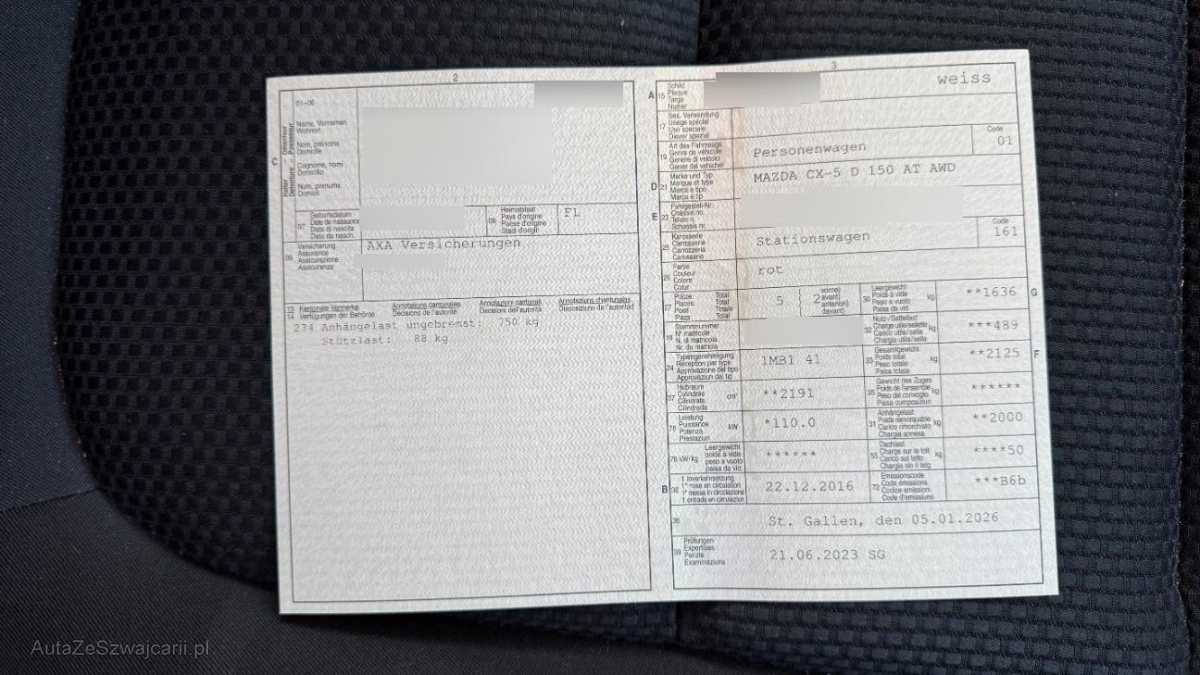 2
01-06
C
Halter
Détenteur
Name, Vornamen
Wohnort
Nom, prénoms
Domicile
Cognome, nomi
Domicilio
Num, prenums
Domicil
07
Geburtsdatum
Date de naissance
Data di nascita
Data da nasch.
08
Heimatstaat
Pays d'origine
Paese d'origine
Stadi d'origin
FL
09
Versicherung
Assurance
Assicurazione
Assicuranza
AXA Versicherungen
13
14
Kantonale Vermerke
Verfügungen der Behörde
Annotations cantonales
Décisions de l'autorité
Annotazioni cantonali
Decisioni dell'autorità
Annotaziuns chantunalas
Disposiziuns da l'autoritad
234 Anhängelast ungebremst: 750 kg
Stützlast: 88 kg
3
A 15
Schild
Plaque
Targa
Numer
weiss
17
Bes. Verwendung
Usage spécial
Uso speciale
Diever spezial
19
Art des Fahrzeugs
Genre de véhicule
Genere di veicolo
Gener dal vehichel
Personenwagen
Code
01
D 21
Marke und Typ
Marque et type
Marca e tipo
Marca e tip
MAZDA CX-5 D 150 AT AWD
E 23
Fahrgestell-Nr.
Châssis no
Telaio n.
Schassis nr.
25
Karosserie
Carrosserie
Carrozzeria
Carossaria
Stationswagen
Code
161
26
Farbe
Couleur
Colore
Colur
rot
27
Plätze: Total
Places: Total
Posti: Totale
Plazs: Total
5
2
vorne)
avant)
anteriori)
davant)
30
Leergewicht
Poids à vide
Peso a vuoto
Paisa da vid
kg
**1636
G
18
Stammnummer
N° matricule
N. di matricola
Nr. da matricla
32
Nutz-/Sattellast
Charge utile/sellette
Carico utile/sella
Chargia utila/sella
kg
***489
24
Typengenehmigung
Réception par type
Approvazione del tipo
Approvaziun dal tip
1MB1 41
33
Gesamtgewicht
Poids total
Peso totale
Paisa totala
kg
**2125
F
37
Hubraum
Cylindrée
Cilindrata
Cilindrada
cm³
**2191
35
Gewicht des Zuges
Poids de l'ensemble
Peso del convoglio
Paisa cumposiziun
kg
******
76
Leistung
Puissance
Potenza
Prestaziun
kW
*110.0
31
Anhängelast
Poids remorquable
Carico rimorchiato
Chargia annexa
kg
**2000
78 kW/kg
Leergewicht
poids à vide
peso a vuoto
paisa da vid
******
55
Dachlast
Charge sur le toit
Carico sul tetto
Chargia sin il tetg
kg
****50
B 36
1. Inverkehrsetzung
1re mise en circulation
1a messa in circolazione
1. entrada en circulaziun
22.12.2016
72
Emissionscode
Code émissions
Codice emissioni
Code d'emissiuns
***B6b
38
St. Gallen, den 05.01.2026
39
Prüfungen
Expertises
Perizie
Examinaziuns
21.06.2023 SG
AutaZeSzwajcarii.pl